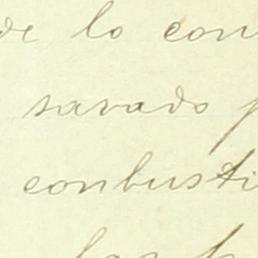 de lo con
savado p
conbusti